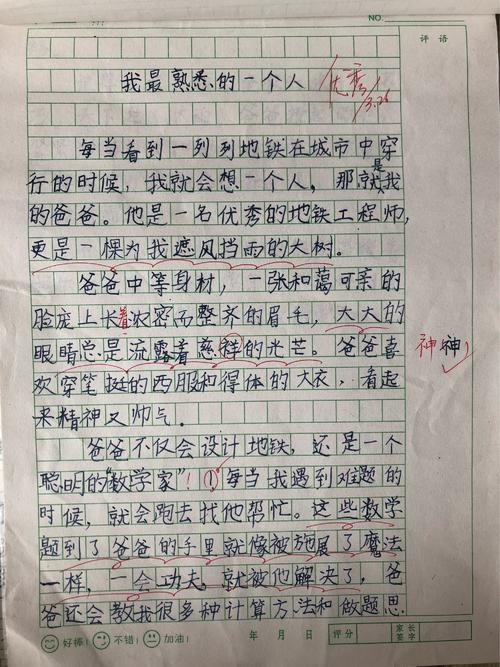 NO.
评语
我最熟悉的一个人
优秀
3.26
每当看到一列列地铁在城市中穿
行的时候，我就会想一个人，那就是我
的爸爸。他是一名优秀的地铁工程师，
更是一棵为我遮风挡雨的大树。
爸爸中等身材，一张和蔼可亲的
脸庞上长着浓密而整齐的眉毛，大大的
眼睛总是流露着慈祥的光芒。爸爸喜
神神
欢穿笔挺的西服和得体的大衣，看起
来精神又帅气。
爸爸不仅会设计地铁，还是一个
聪明的“数学家”！①每当我遇到难题的
时候，就会跑去找他帮忙。这些数学
题到了爸爸的手里就像被施展了魔法
一样，一会功夫，就被他解决了，爸
爸还会教我很多种计算方法和做题思
好棒！ 不错！ 加油！ 年 月 日 评分 家长签字